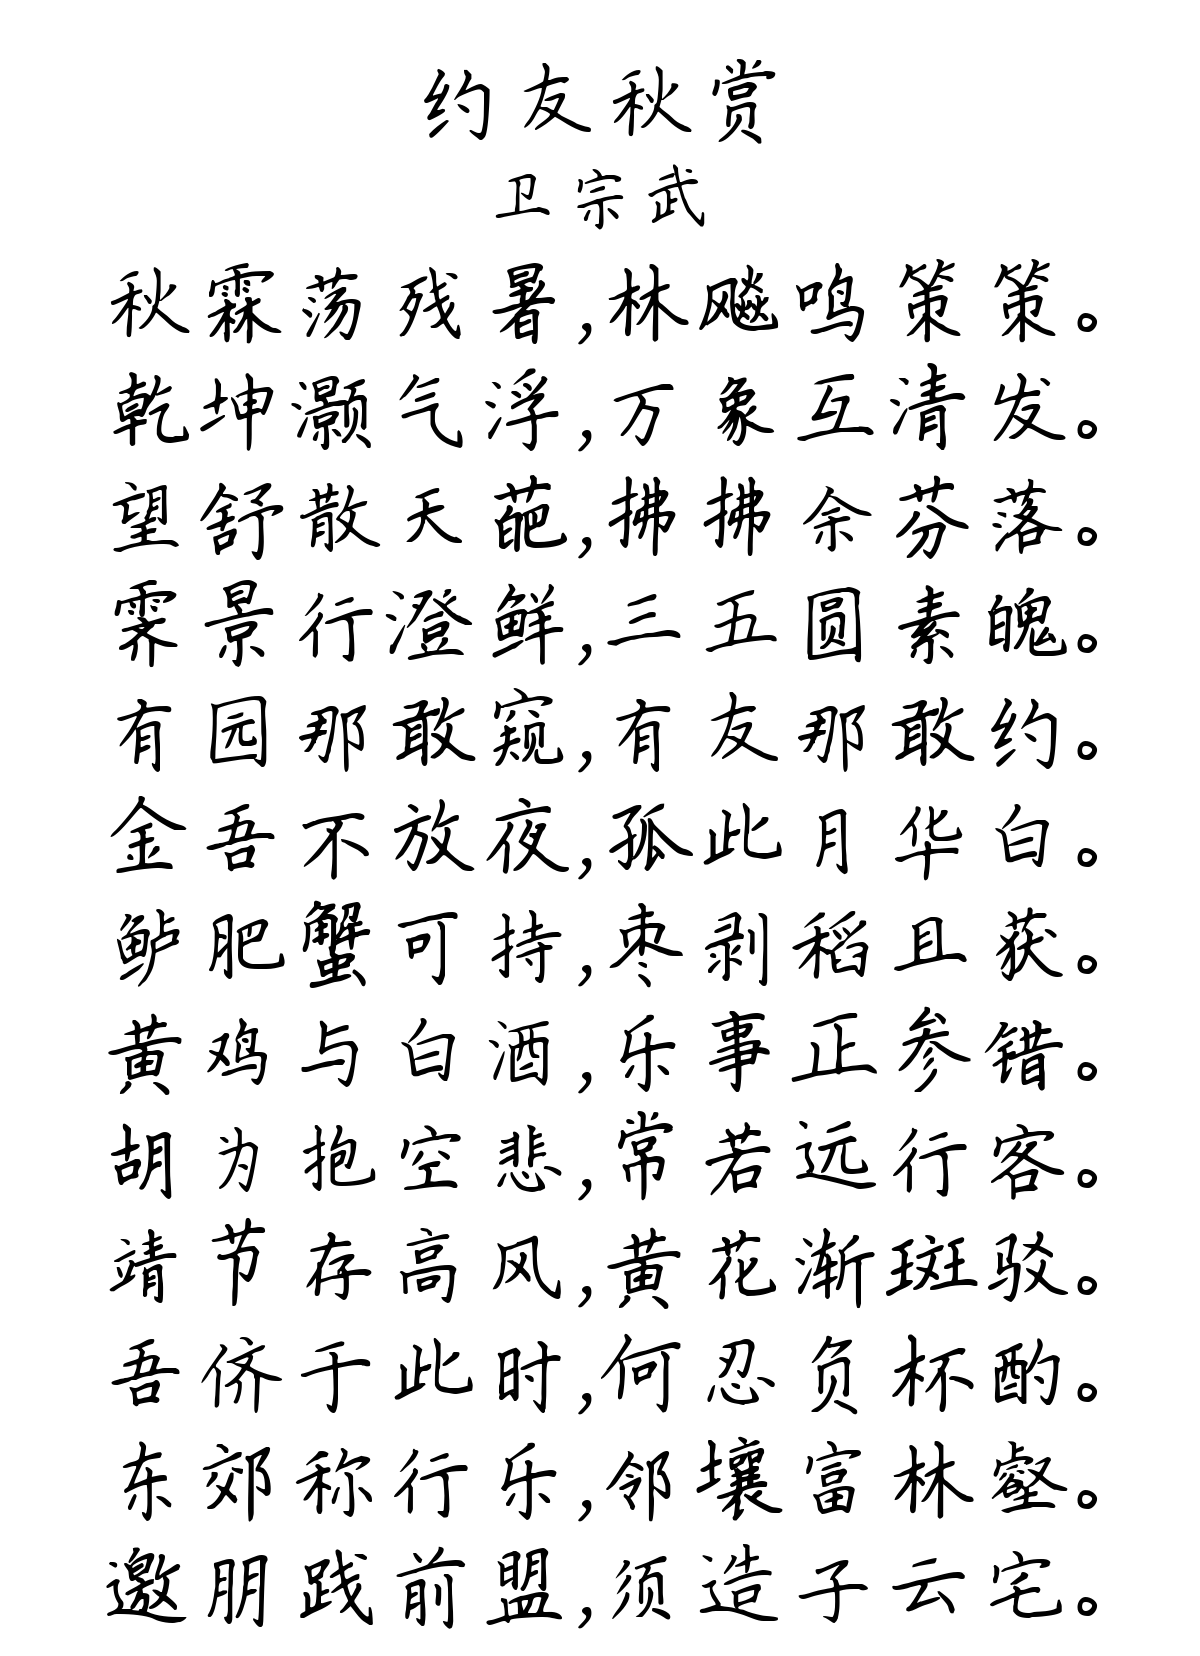 约友秋赏
卫宗武
秋霖荡残暑,林飚鸣策策。
乾坤灏气浮,万象互清发。
望舒散天葩,拂拂余芬落。
霁景行澄鲜,三五圆素魄。
有园那敢窥,有友那敢约。
金吾不放夜,孤此月华白。
鲈肥蟹可持,枣剥稻且获。
黄鸡与白酒,乐事正参错。
胡为抱空悲,常若远行客。
靖节存高风,黄花渐斑驳。
吾侪于此时,何忍负杯酌。
东郊称行乐,邻壤富林壑。
邀朋践前盟,须造子云宅。